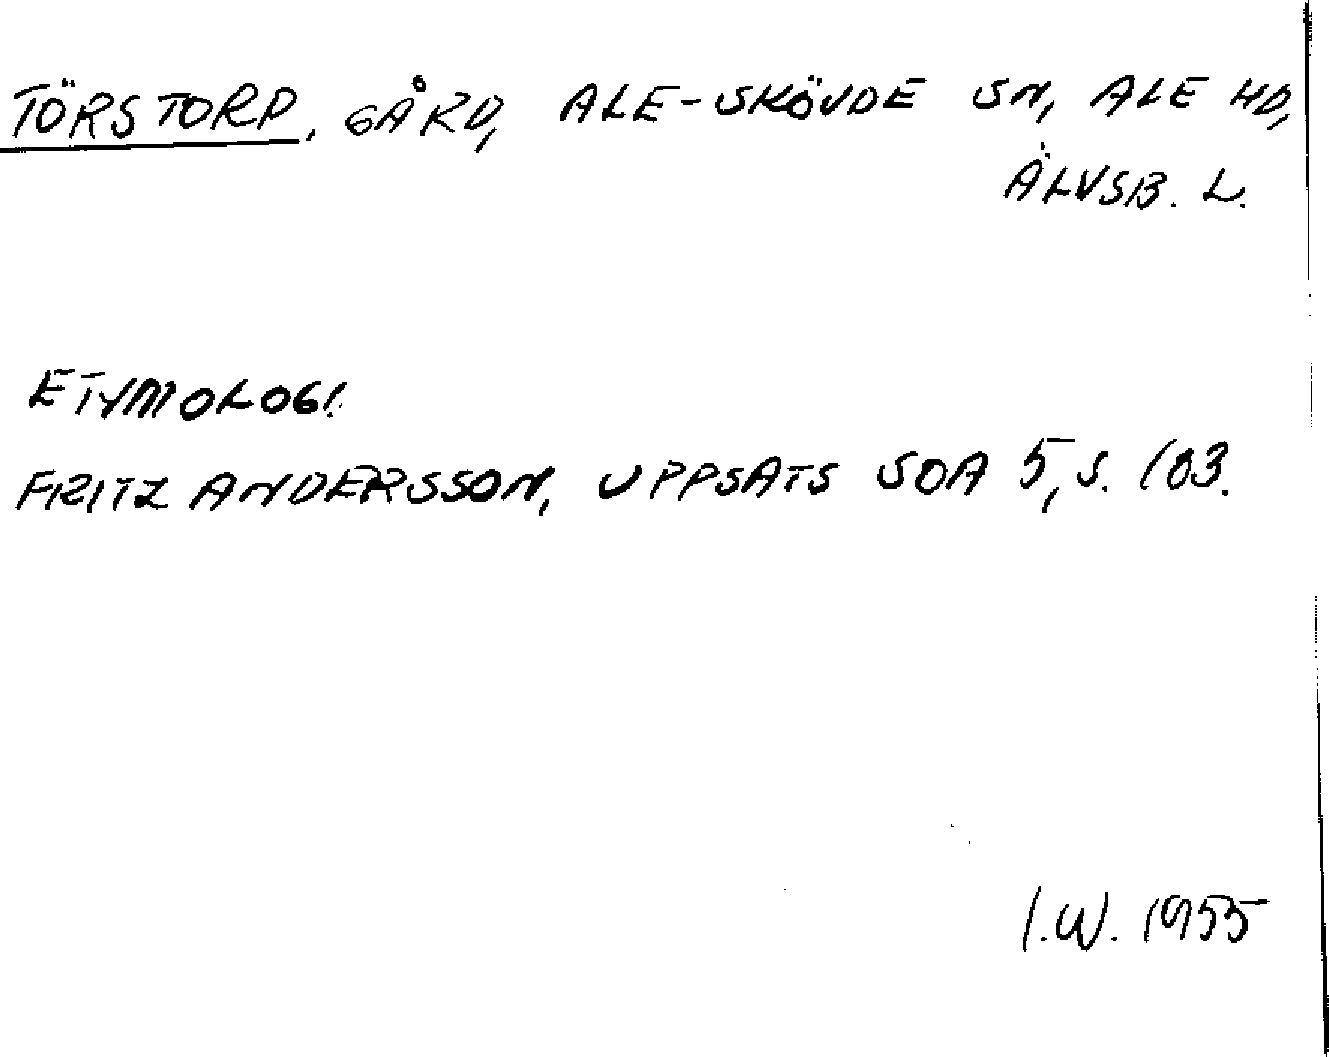 TÖRSTORP, GÅRD, ALE-SKÖVDE SN, ALE HD,
ÄLVSB. L.
ETYMOLOGI.
FRITZ ANDERSSON, UPPSATS SOA 5, S. 103.
I.W. 1955